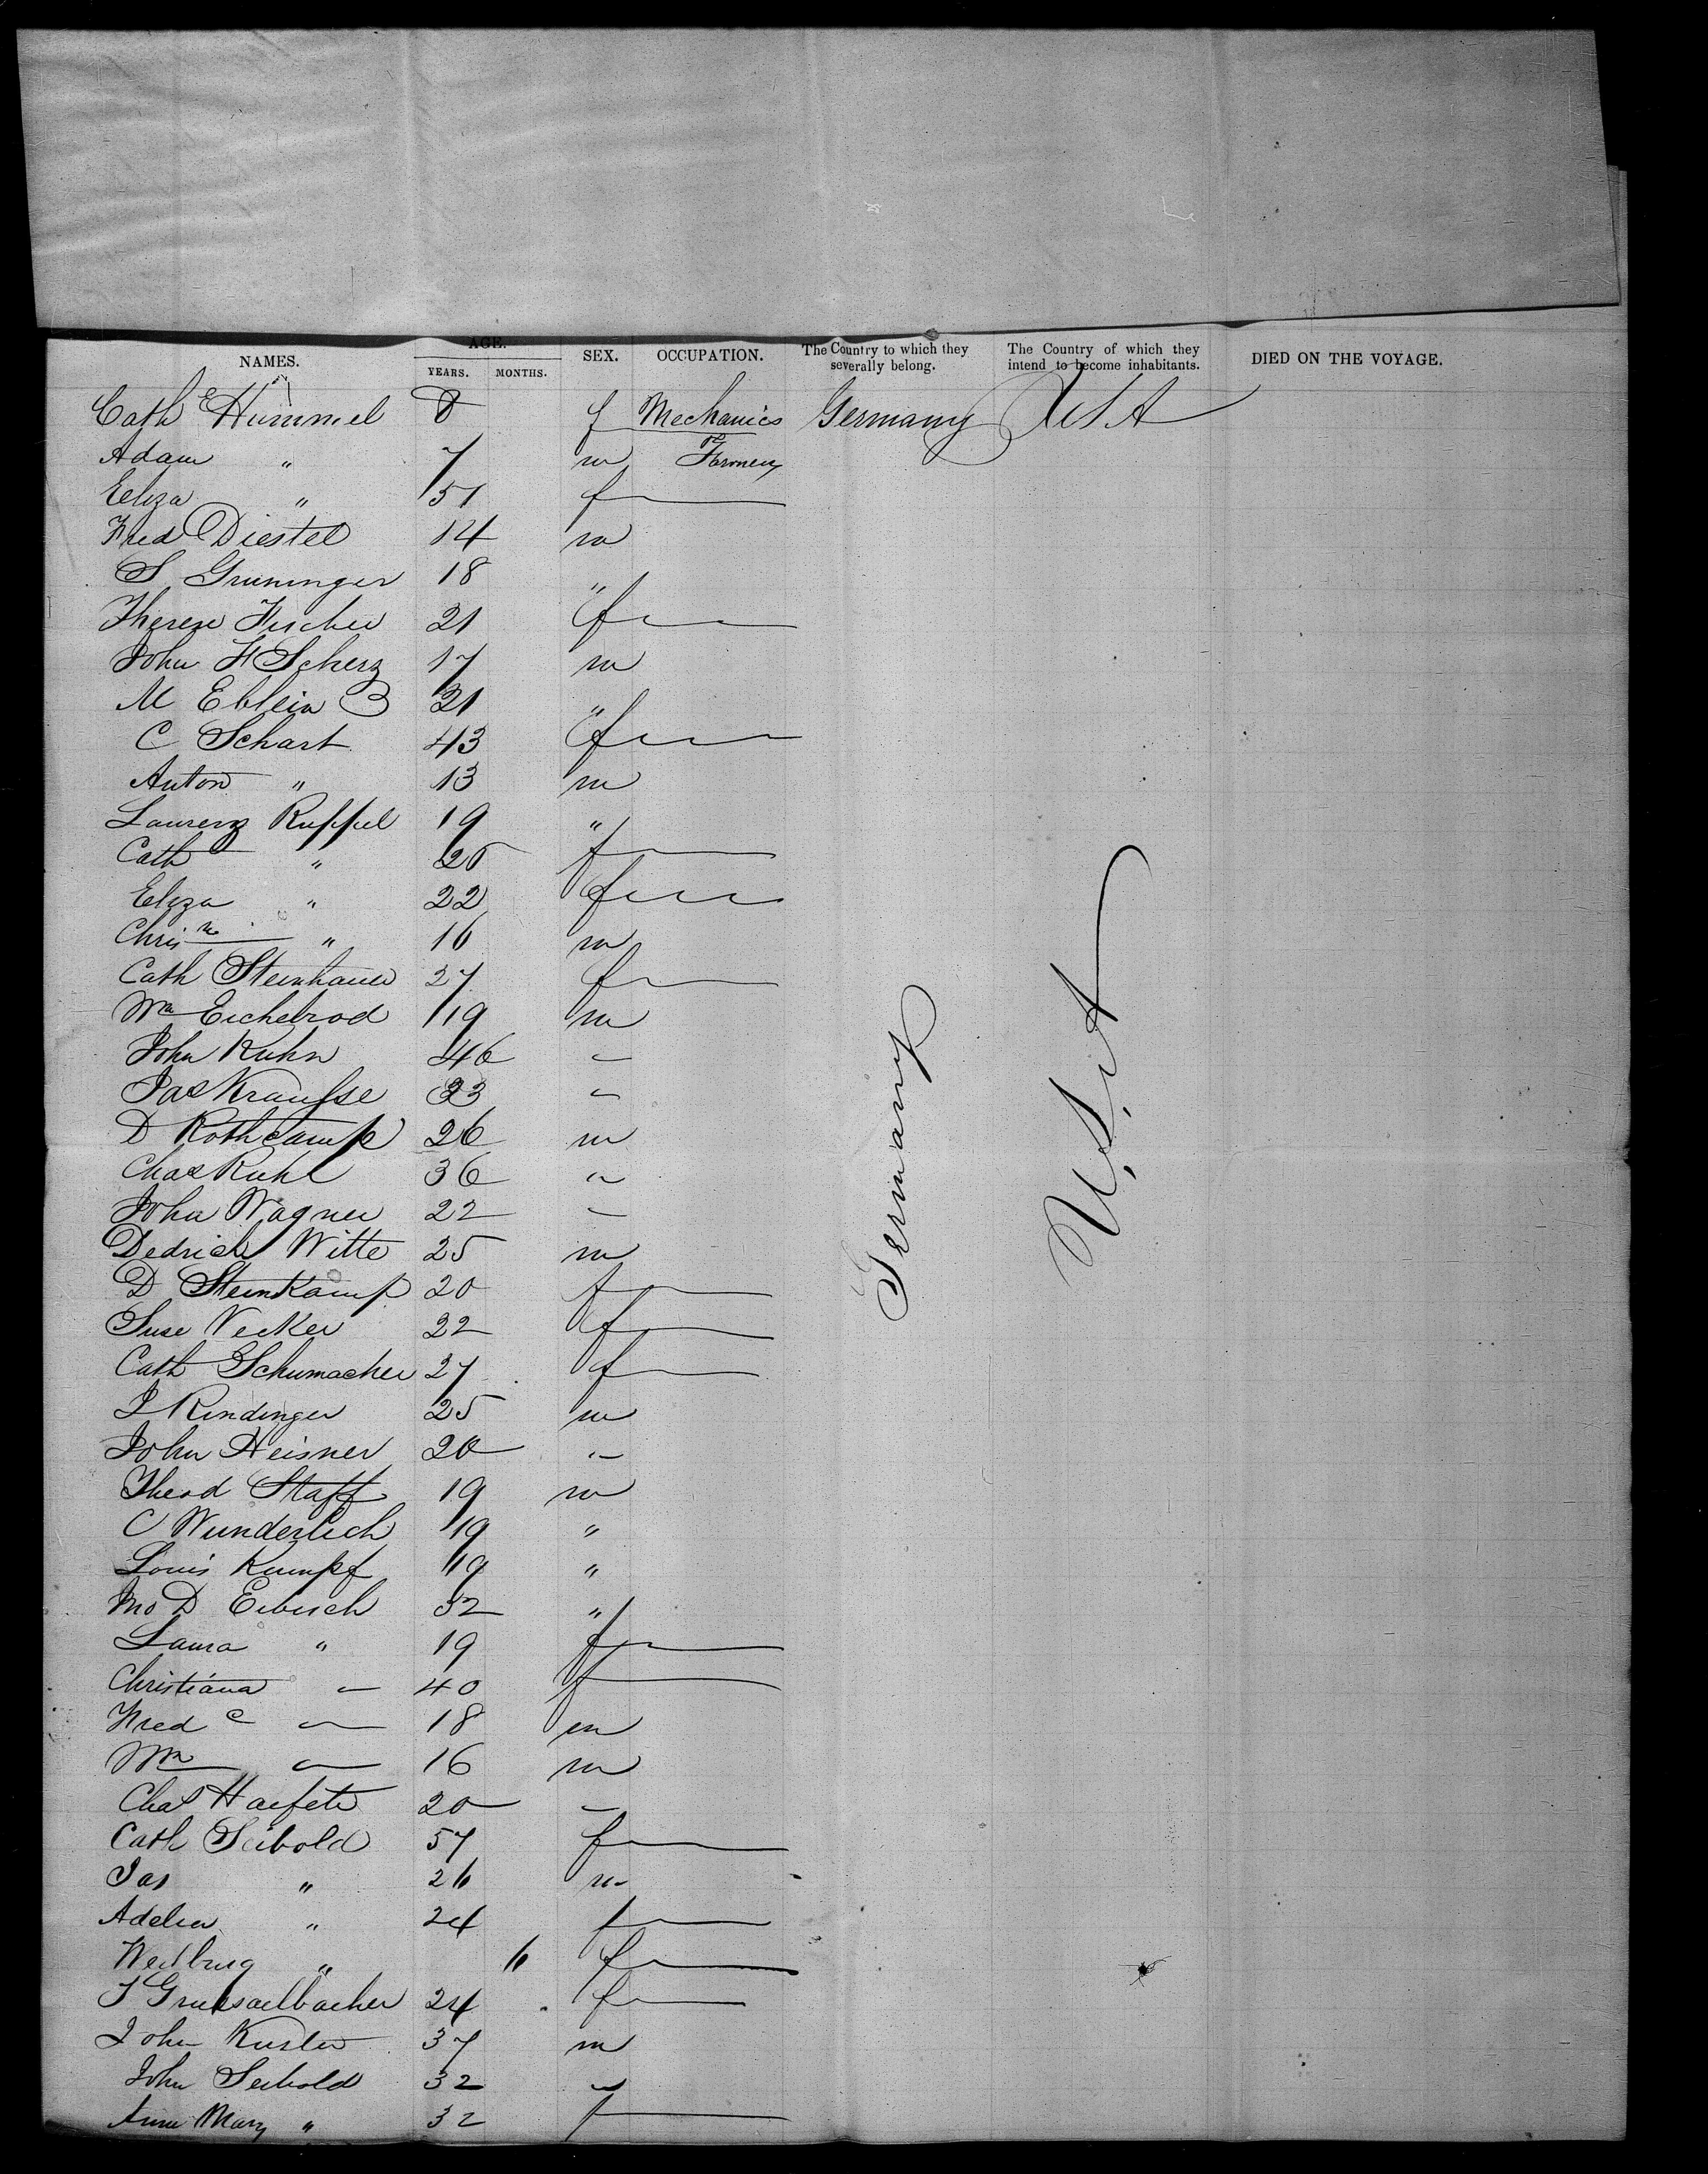 NAMES. AGE. YEARS. MONTHS. SEX. OCCUPATION. The Country to which they severally belong. The Country of which they intend to become inhabitants. DIED ON THE VOYAGE.
Cath E Hummel 8 f Mechanics Germany USA
Adam " 7 m & Farmers
Eliza " 51 f
Fred Diestel 14 m
S Gruninger 18 "
Therese Fischer 21 f
John H Scherz 17 m
M Eblein 31 "
C Schart 43 f
Anton " 13 m
Laurenz Ruppel 19 "
Cath " 25 f
Eliza " 22 f
Chrisne " 16 m
Cath Steinhauer 27 f
Wm Eichelrod 19 m
John Kuhn 46 "
Jas Kraufse 33 "
D Rothcamp 26 m
Chas Ruhl 36 "
John Wagner 22 "
Dedrich Witte 25 m
D Steinkamp 20 f
Suse Necker 22 f
Cath Schumacher 27 f
J Rindinger 25 m
John Heisner 20 "
Theod Staff 19 m
C Wunderlich 19 "
Louis Kumpf 19 "
Jno D Eibisch 32 "
Laura " 19 f
Christiana " 40 f
Fred C " 18 m
Wm " 16 m
Chas 20 "
Cath Seibold 57 f
Jas " 26 m
Adelia " 24 f
" 6 f
J 24 f
John Kusler 37 m
John Seibold 32 "
Anna Mary " 32 f
Germany
U.S.A